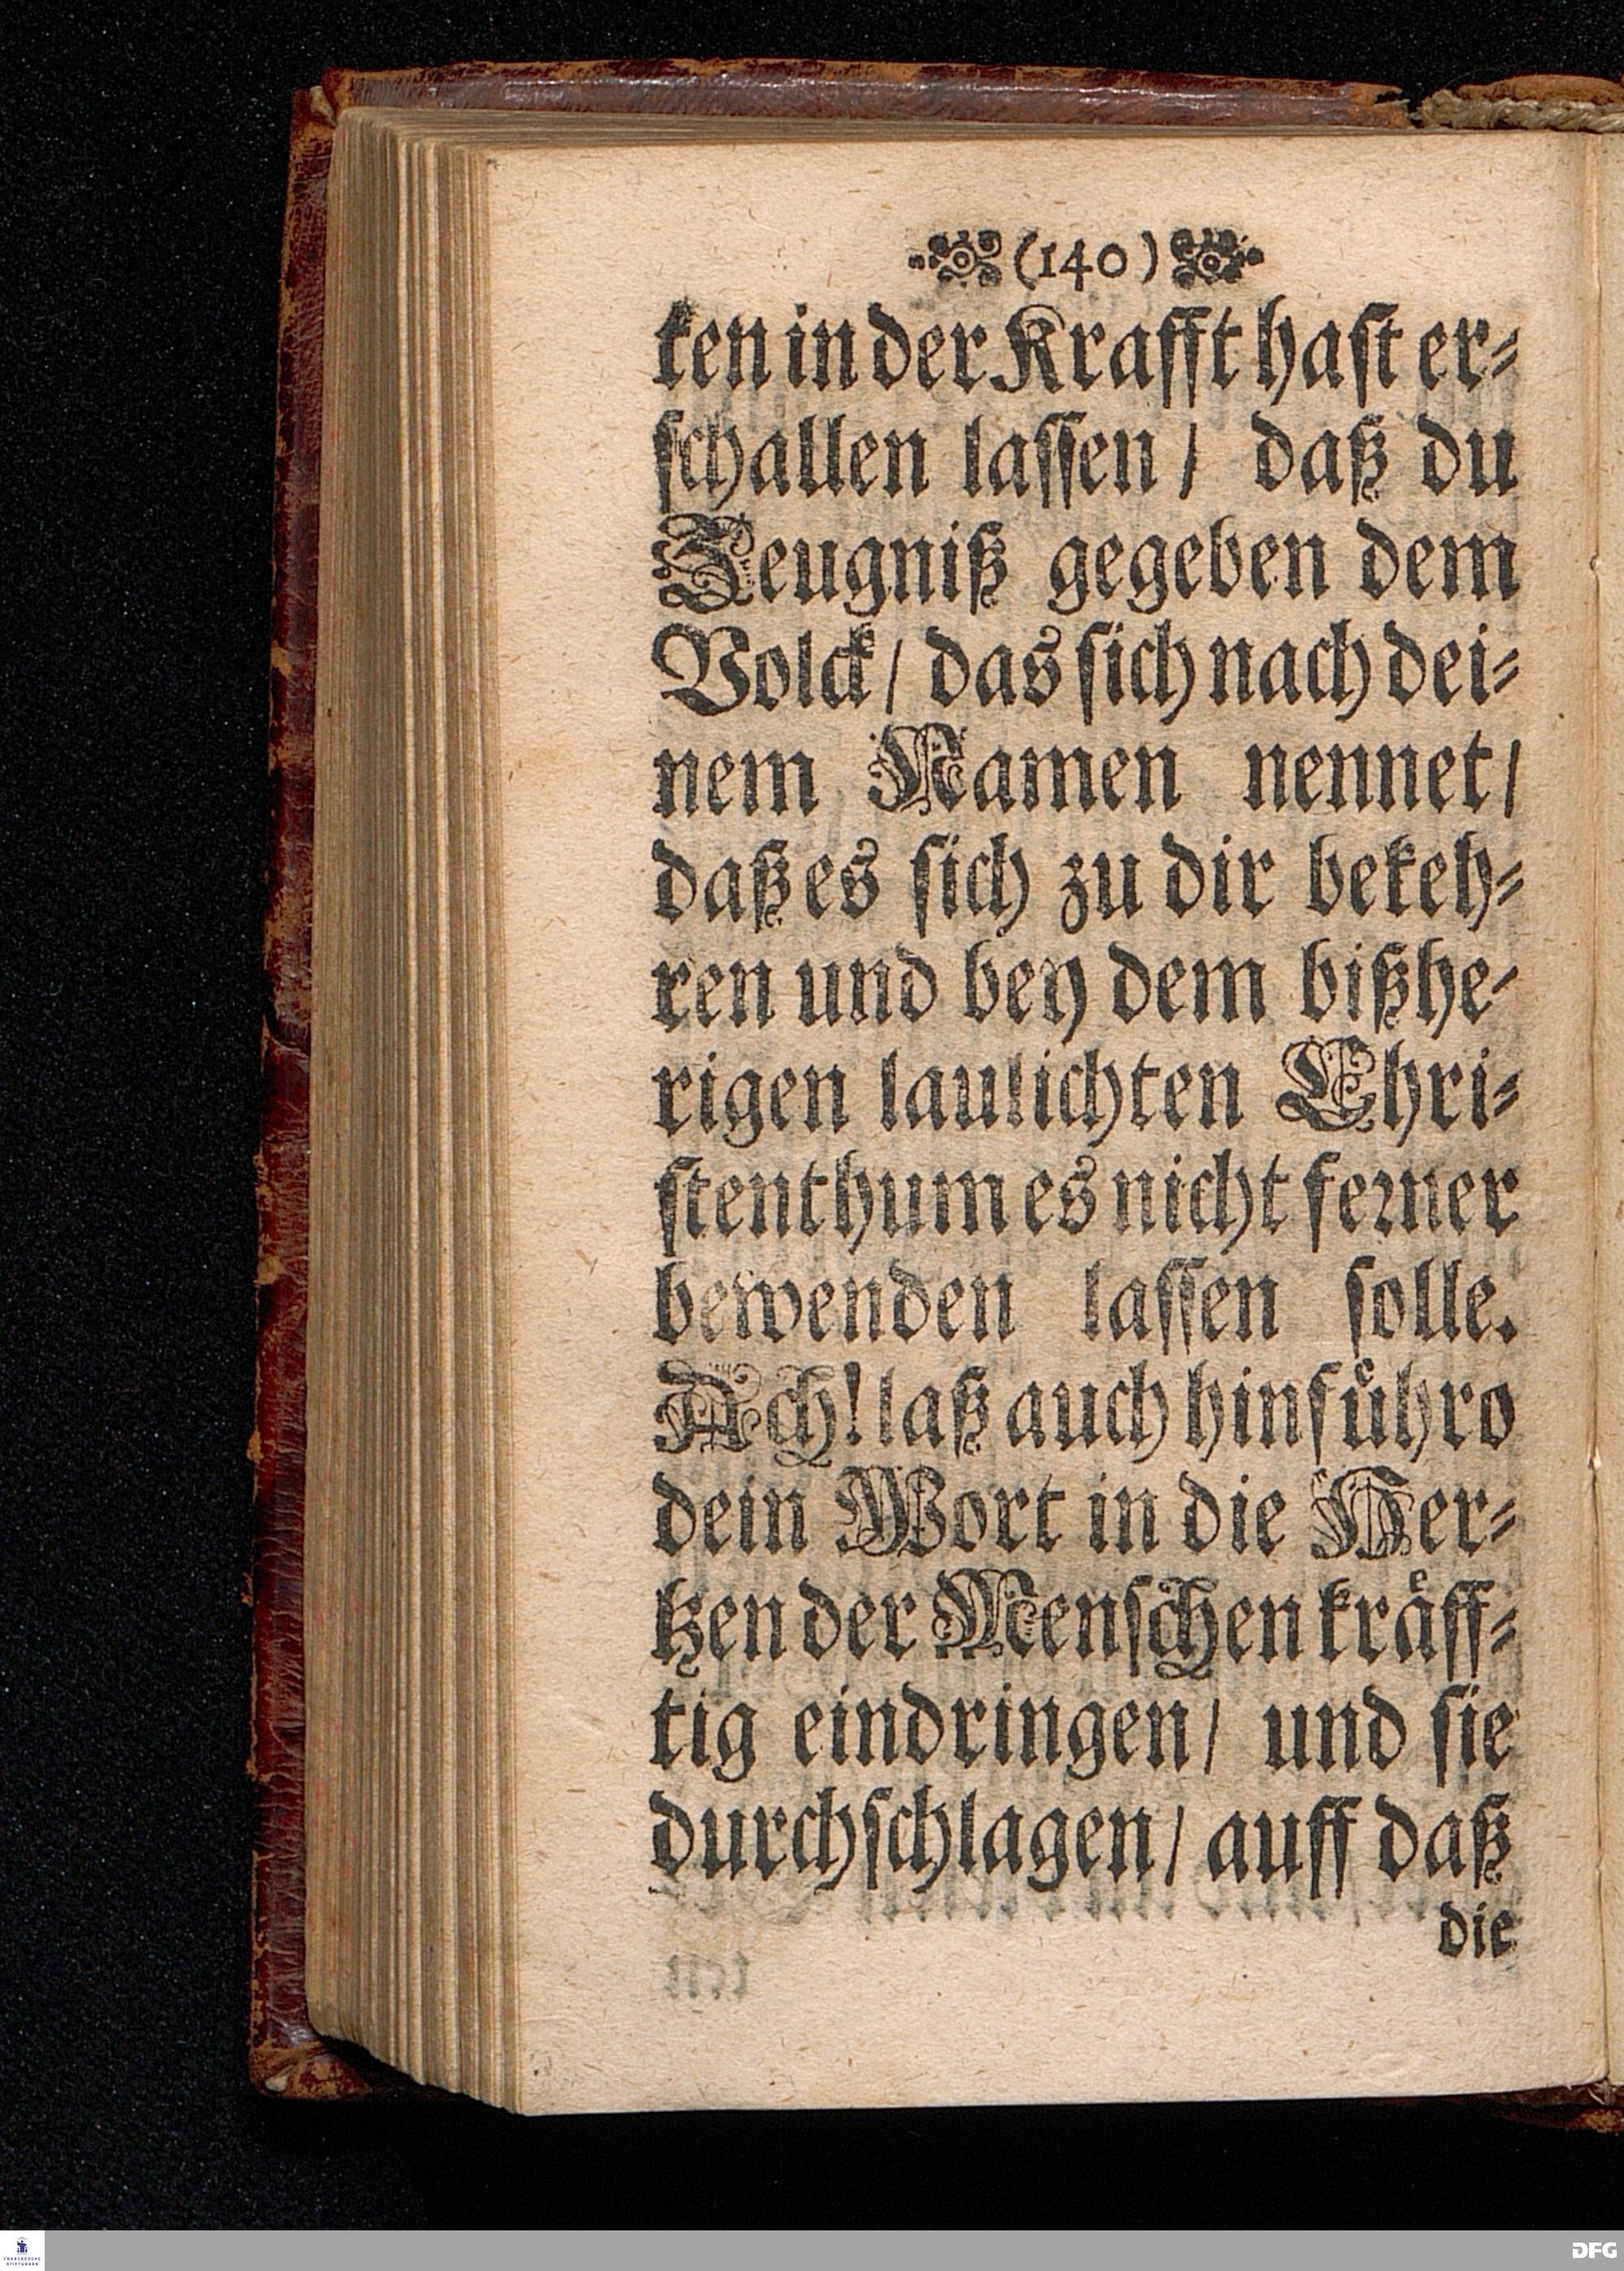 (140)
ken in der Krafft hast er-
schallen lassen/ daß du
Zeugniß gegeben dem
Volck/ das sich nach dei-
nem Namen nennet/
daß es sich zu dir bekeh-
ren und bey dem bißhe-
rigen laulichten Chri-
stenthum es nicht ferner
bewenden lassen solle.
Ach! laß auch hinfuͤhro
dein Wort in die Her-
tzen der Menschen kraͤff-
tig eindringen/ und sie
durchschlagen/ auff daß
die
FRANCKESCHE
STIFTUNGEN
DFG